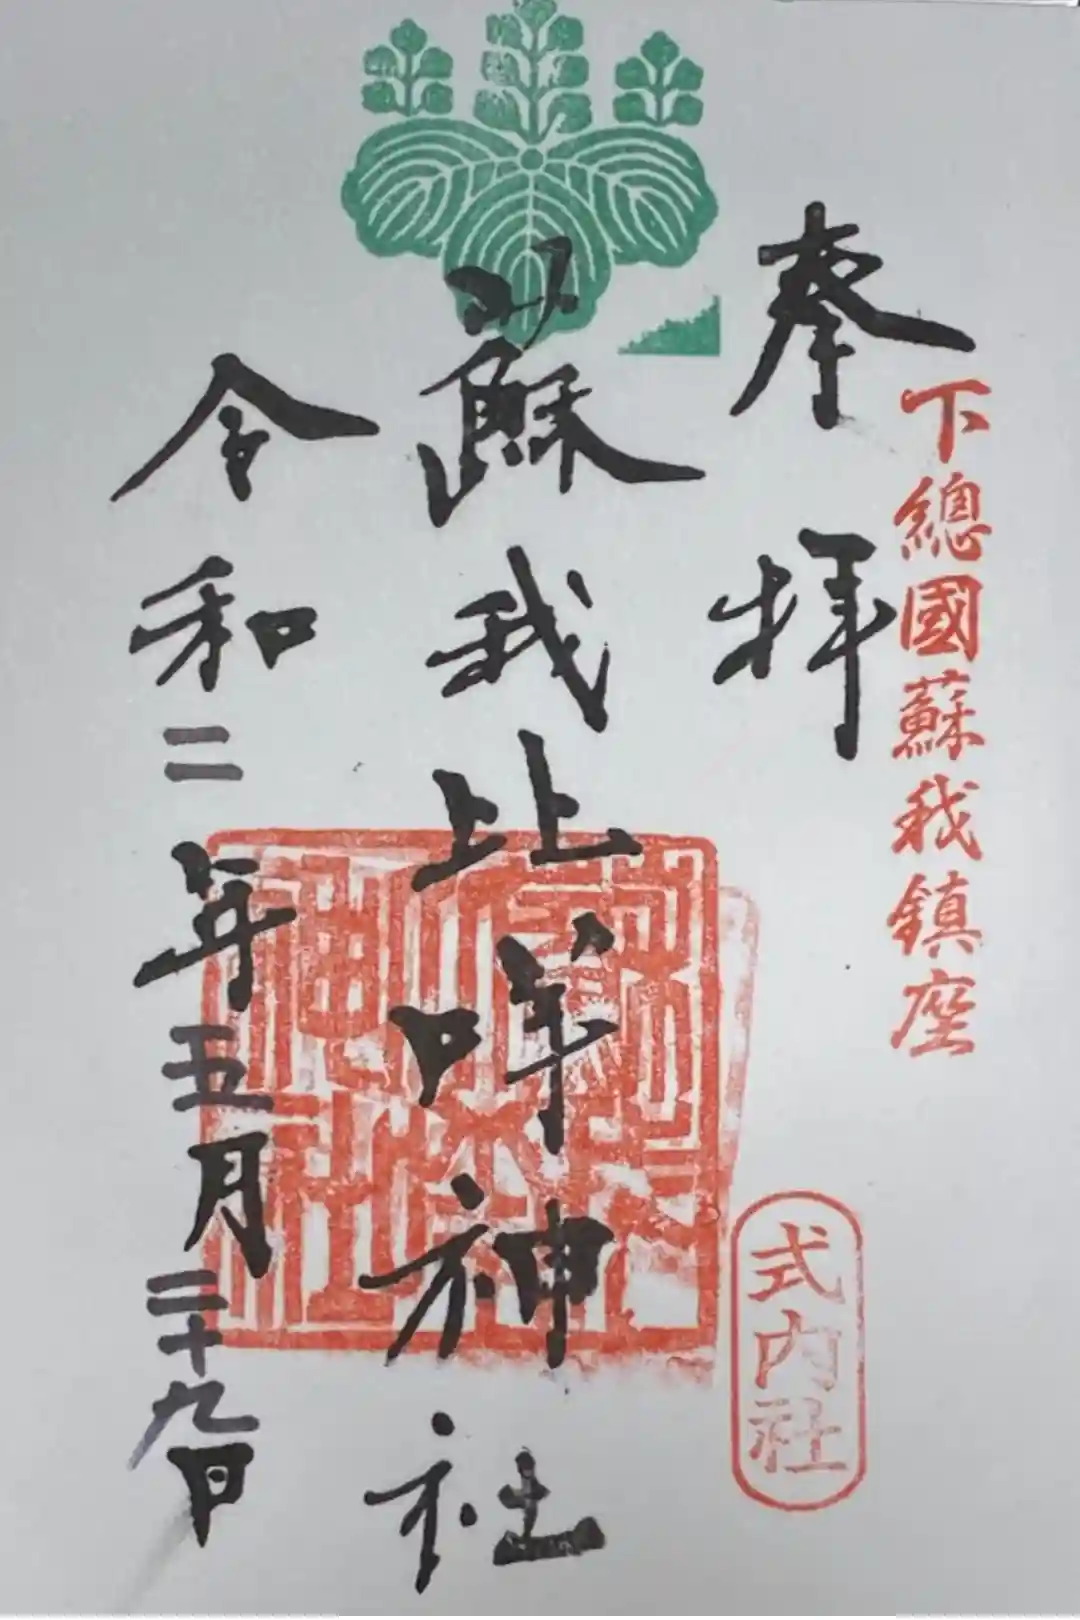 下總國蘇我鎮座
奉拝
式内社
蘇我比咩神社
令和二年五月二十九日